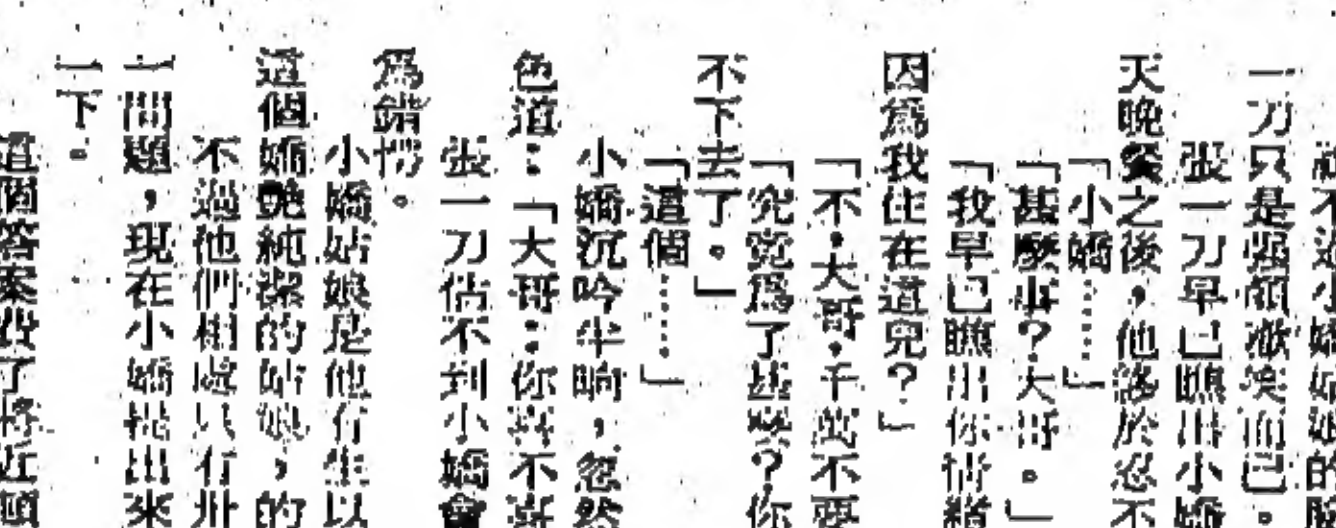 不過小嬌姑娘的
一刀只是强顔微笑而已。
張一刀早已瞧出小嬌
天晚餐之後，他終於忍不
「小嬌……」
「甚麽事？大哥。」
「我早已瞧出你情緒
因爲我住在這兒？」
「不，大哥，千萬不要
「究竟爲了甚麽？你
不下去了。」
「這個……」
小嬌沉吟半晌，忽然
色道：「大哥：你喜不喜
張一刀估不到小嬌會
爲錯愕。
小嬌姑娘是他有生以
這個嬌艷純潔的姑娘，的
不過他們相處只有卅
一問題，現在小嬌提出來
一下。
這個答案費了將近頓